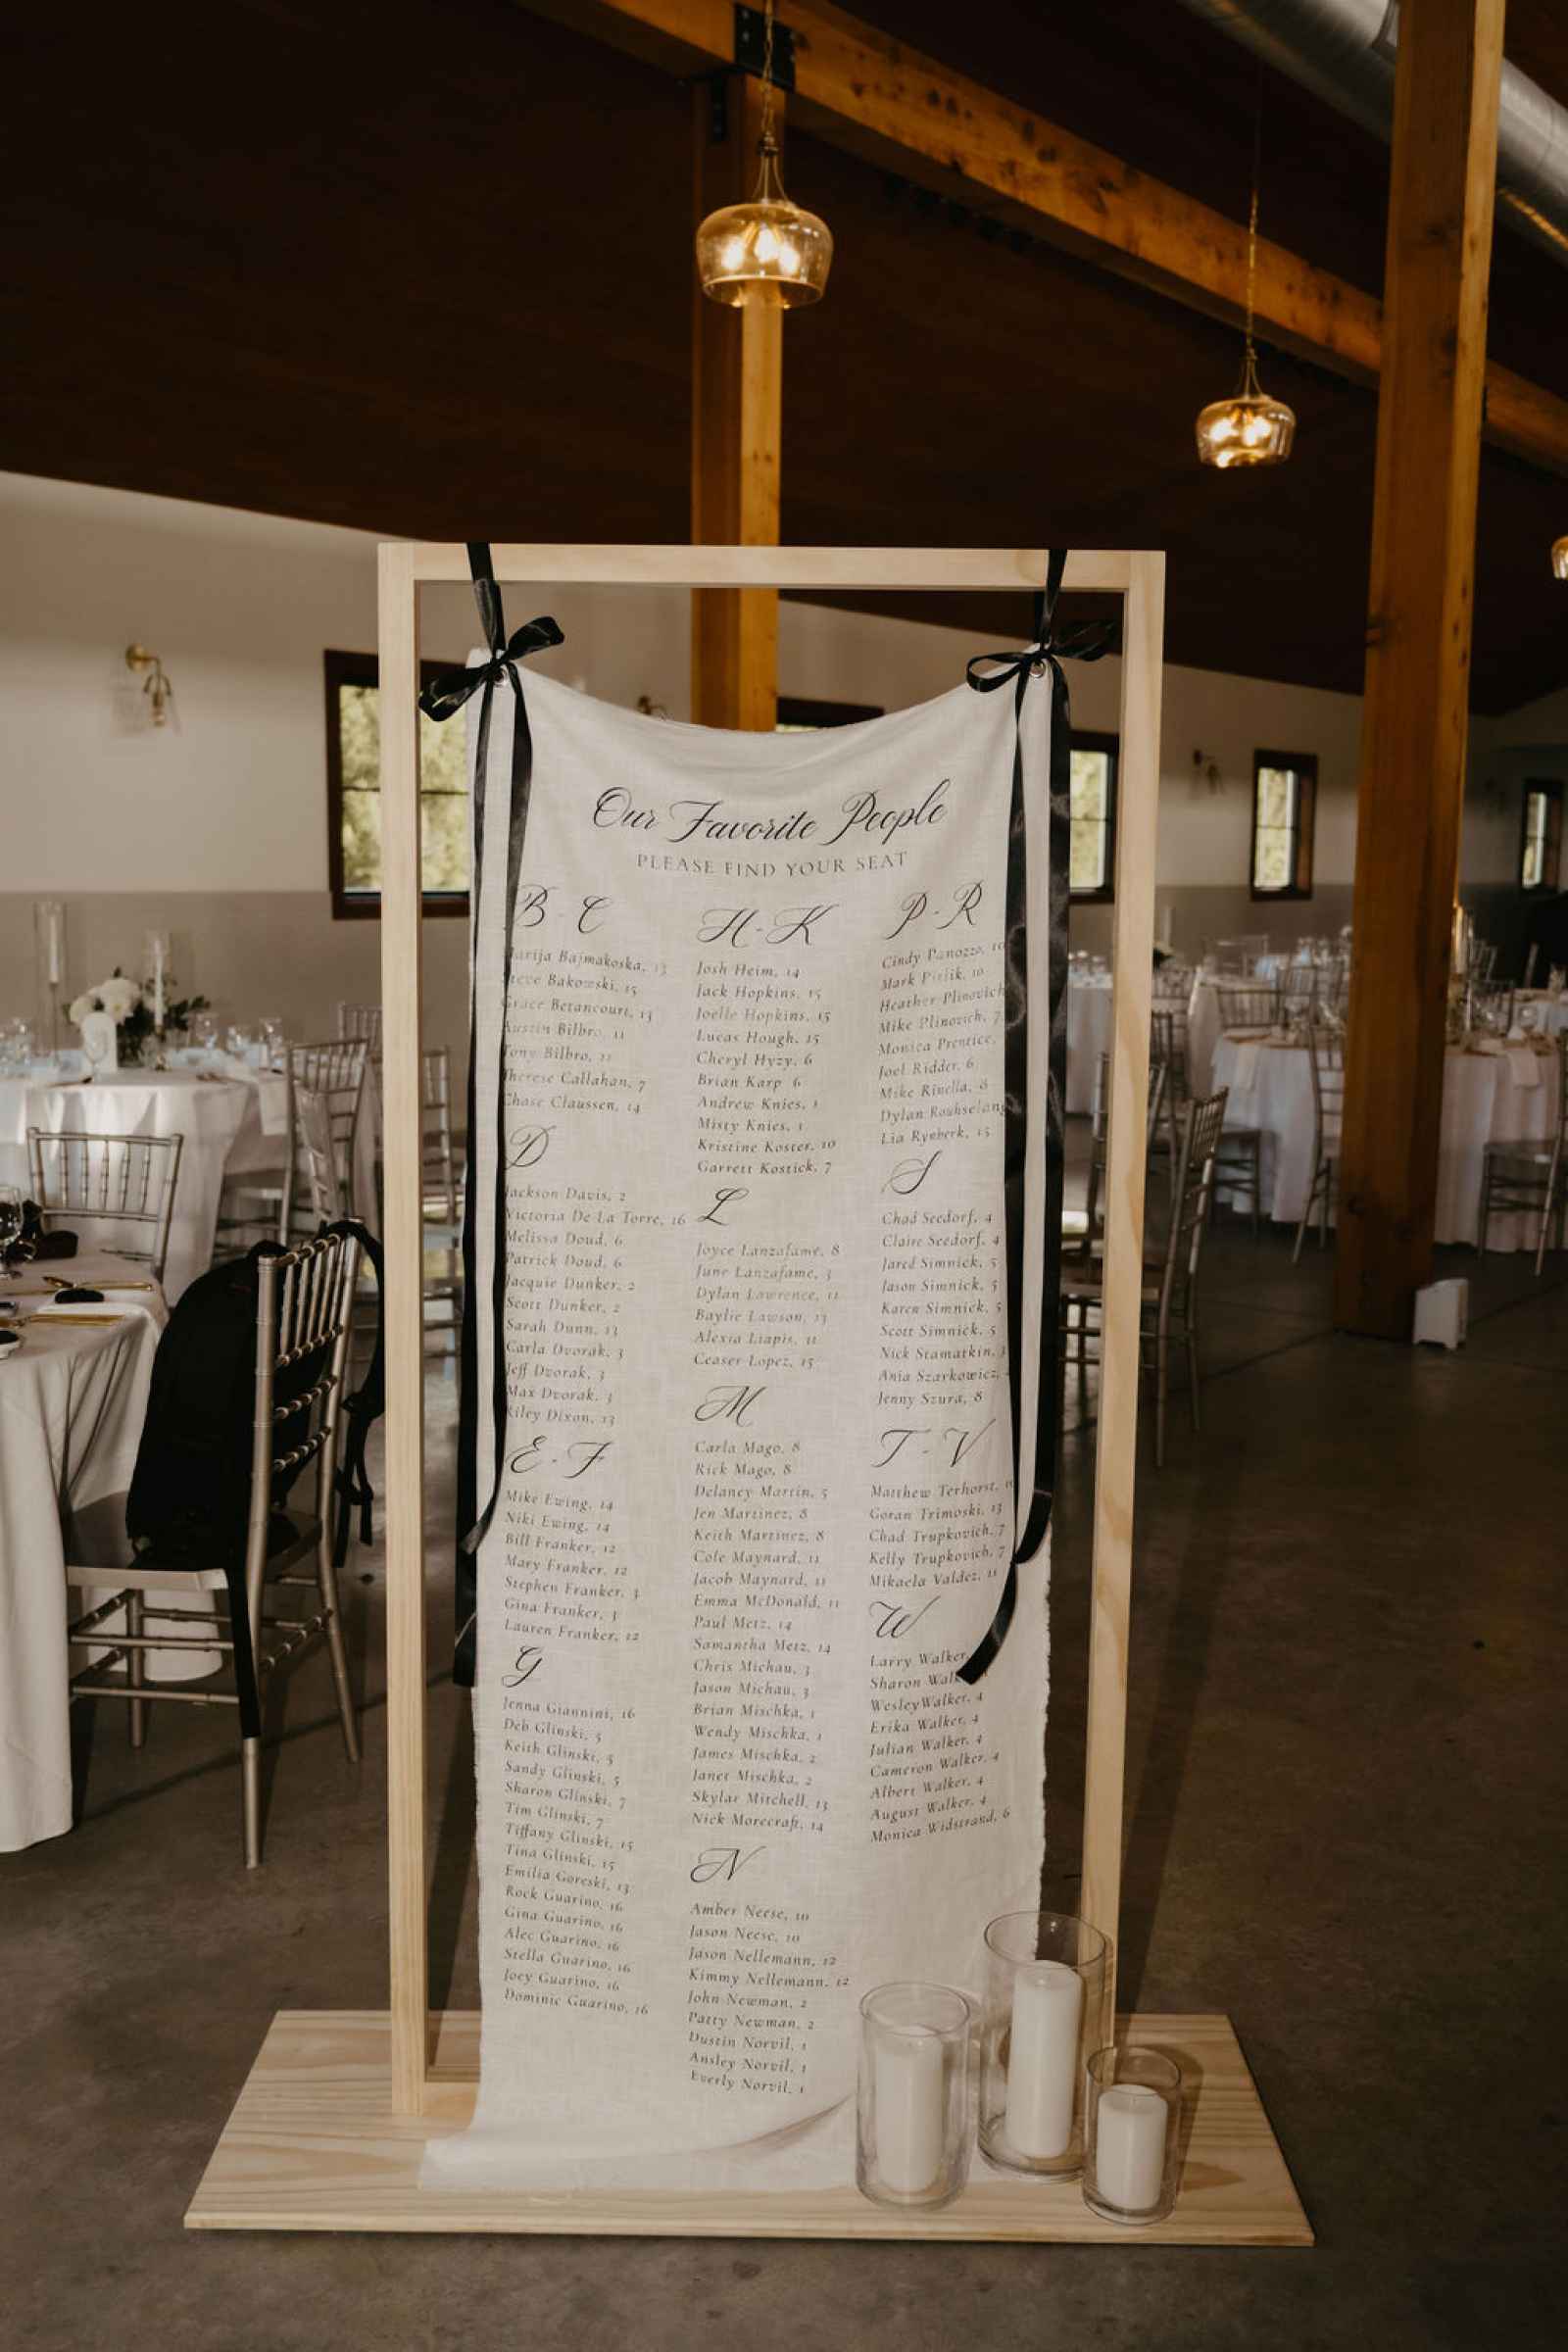 Our Favorite People
PLEASE FIND YOUR SEAT
B - C
Bajmakoska, 13
Steve Bakowski, 15
Grace Betancourt, 13
Austin Bilbro, 11
Tony Bilbro, 11
Therese Callahan, 7
Chase Claussen, 14
D
Jackson Davis, 2
Victoria De La Torre, 16
Melissa Doud, 6
Patrick Doud, 6
Jacquie Dunker, 2
Scott Dunker, 2
Sarah Dunn, 13
Carla Dvorak, 3
Jeff Dvorak, 3
Max Dvorak, 3
Riley Dixon, 13
E - F
Mike Ewing, 14
Niki Ewing, 14
Bill Franker, 12
Mary Franker, 12
Stephen Franker, 3
Gina Franker, 3
Lauren Franker, 12
G
Jenna Giannini, 16
Deb Glinski, 5
Keith Glinski, 5
Sandy Glinski, 5
Sharon Glinski, 7
Tim Glinski, 7
Tiffany Glinski, 15
Tina Glinski, 15
Emilia Goreski, 13
Rock Guarino, 16
Gina Guarino, 16
Alec Guarino, 16
Stella Guarino, 16
Joey Guarino, 16
Dominic Guarino, 16
H - K
Josh Heim, 14
Jack Hopkins, 15
Joelle Hopkins, 15
Lucas Hough, 15
Cheryl Hyzy, 6
Brian Karp 6
Andrew Knies, 1
Misty Knies, 1
Kristine Koster, 10
Garrett Kostick, 7
L
Joyce Lanzafame, 8
June Lanzafame, 3
Dylan Lawrence, 11
Baylie Lawson, 13
Alexia Liapis, 11
Ceaser Lopez, 15
M
Carla Mago, 8
Rick Mago, 8
Delaney Martin, 5
Jen Martinez, 8
Keith Martinez, 8
Cole Maynard, 11
Jacob Maynard, 11
Emma McDonald, 11
Paul Metz, 14
Samantha Metz, 14
Chris Michau, 3
Jason Michau, 3
Brian Mischka, 1
Wendy Mischka, 1
James Mischka, 2
Janet Mischka, 2
Skylar Mitchell, 13
Nick Morecraft, 14
N
Amber Neese, 10
Jason Neese, 10
Jason Nellemann, 12
Kimmy Nellemann, 12
John Newman, 2
Patty Newman, 2
Dustin Norvil, 1
Ansley Norvil, 1
Everly Norvil, 1
P - R
Cindy Panozzo, 10
Mark Pirlik, 10
Heather Plinovich
Mike Plinovich, 7
Monica Prentice,
Joel Ridder, 6
Mike Rinella, 8
Dylan
Lia Rynberk, 15
S
Chad Seedorf, 4
Claire Seedorf, 4
Jared Simnick, 5
Jason Simnick, 5
Karen Simnick, 5
Scott Simnick, 5
Nick Stamatkin,
Ania Szarkowicz,
Jenny Szura, 8
T - V
Matthew Terhorst,
Goran Trimoski, 13
Chad Trupkovich, 7
Kelly Trupkovich, 7
Mikaela Valdez, 11
W
Larry Walker,
Sharon
Wesley Walker, 4
Erika Walker, 4
Julian Walker, 4
Cameron Walker, 4
Albert Walker, 4
August Walker, 4
Monica Widstrand, 6